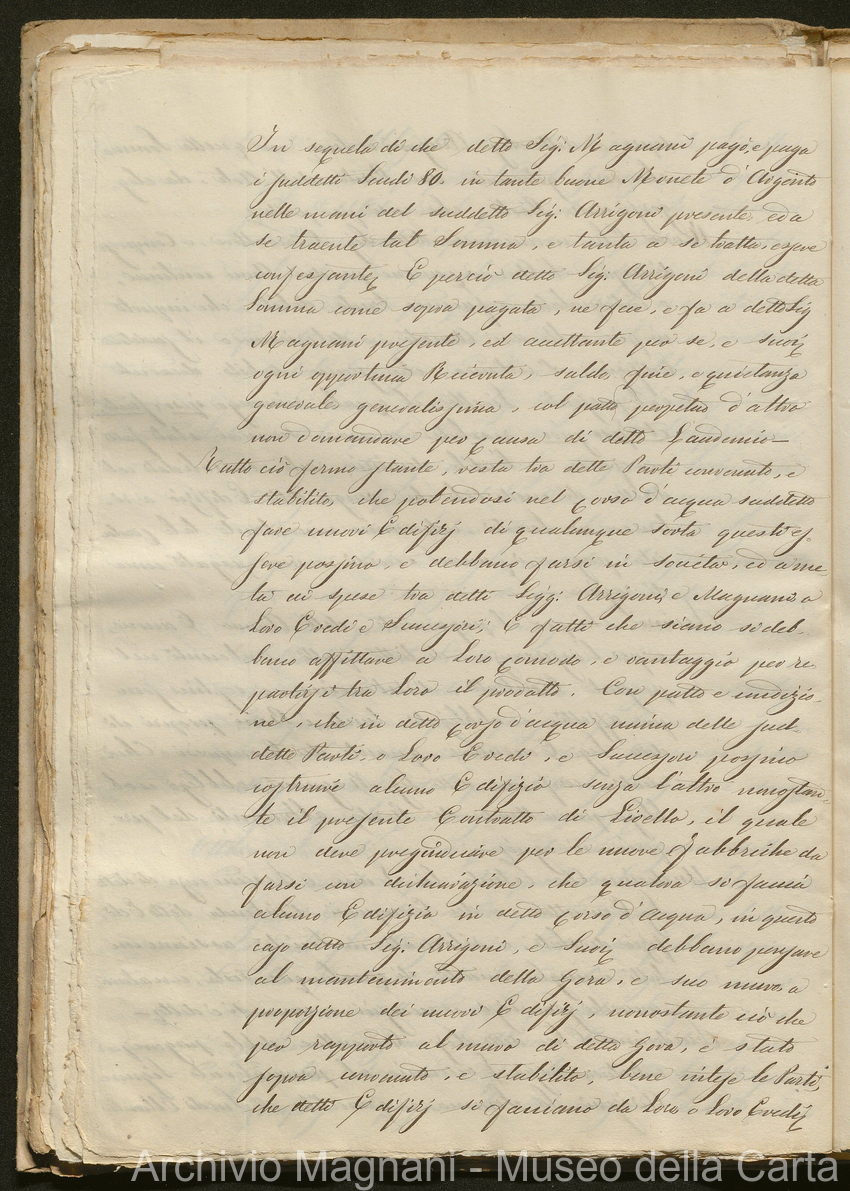 In sequela di che detto Sig: Magnani pagò, e paga
i suddetti Scudi 80. in tante buone Monete d'Argento
nelle mani del suddetto Sig: Arrigoni presente, ed a
se traente tal Somma, e tanta a se tratta, essere
confessante, E perciò detto Sig: Arrigoni della detta
Somma come sopra pagata, ne fece, e fa a detto Sig
Magnani presente, ed accettante per se, e Suoi
ogni opportuna Ricevuta, saldo, fine, e quietanza
generale, generalissima, col patto perpetuo d'altro
non domandare per causa di detto Laudemio—
Tutto ciò fermo stante, resta tra dette Parti convenuto, e
stabilito, che potendosi nel corso d'acqua suddetto
fare nuovi Edifizj di qualunque sorta questi es-
sere possino, e debbano farsi in società, ed a me-
tà di spese tra detti Sigg: Arrigoni, e Magnani, o
Loro Eredi e Successori; E fatti che siano si deb-
bano affittare a Loro comodo, e vantaggio per re
partirsi tra Loro il prodotto. Con patto e condizio-
ne, che in detto corso d'acqua niuna delle sud-
dette Parti, o Loro Eredi, e Successori possino
costruire alcuno Edifizio senza l'altro nonostan-
te il presente Contratto di Livello, il quale
non deve pregiudicare per le nuove Fabbriche da
farsi con dichiarazione, che qualora si faccia
alcuno Edifizio in detto corso d'acqua, in questo
caso detto Sig: Arrigoni, e Suoi debbano pensare
al mantenimento della Gora, e suo muro, a
proporzione dei nuovi Edifizj, nonostante ciò che
per rapporto al muro di detta Gora, è stato
sopra convenuto, e stabilito, bene intese le Parti,
che detti Edifizj si facciano da Loro, o Loro Eredi
Archivio Magnani - Museo della Carta